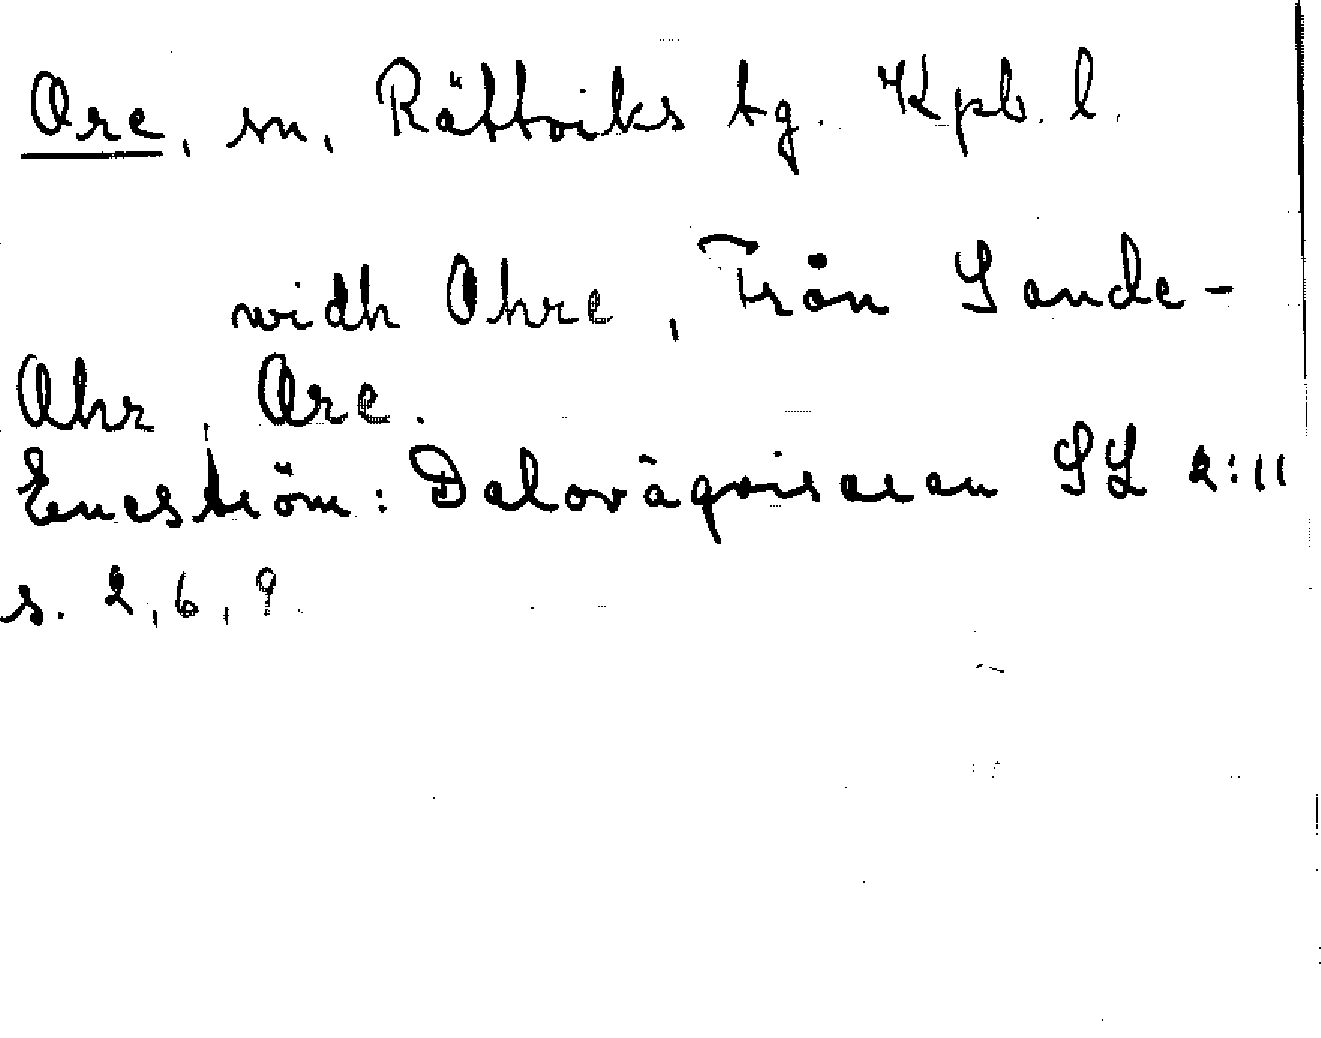 Ore, sn, Rättviks tg. Kpb. l.
widh Ohre, Från Sande-
Ohr, Ore.
Eneström: Dalavägvisaren SL 2:11
s. 2, 6, 9.